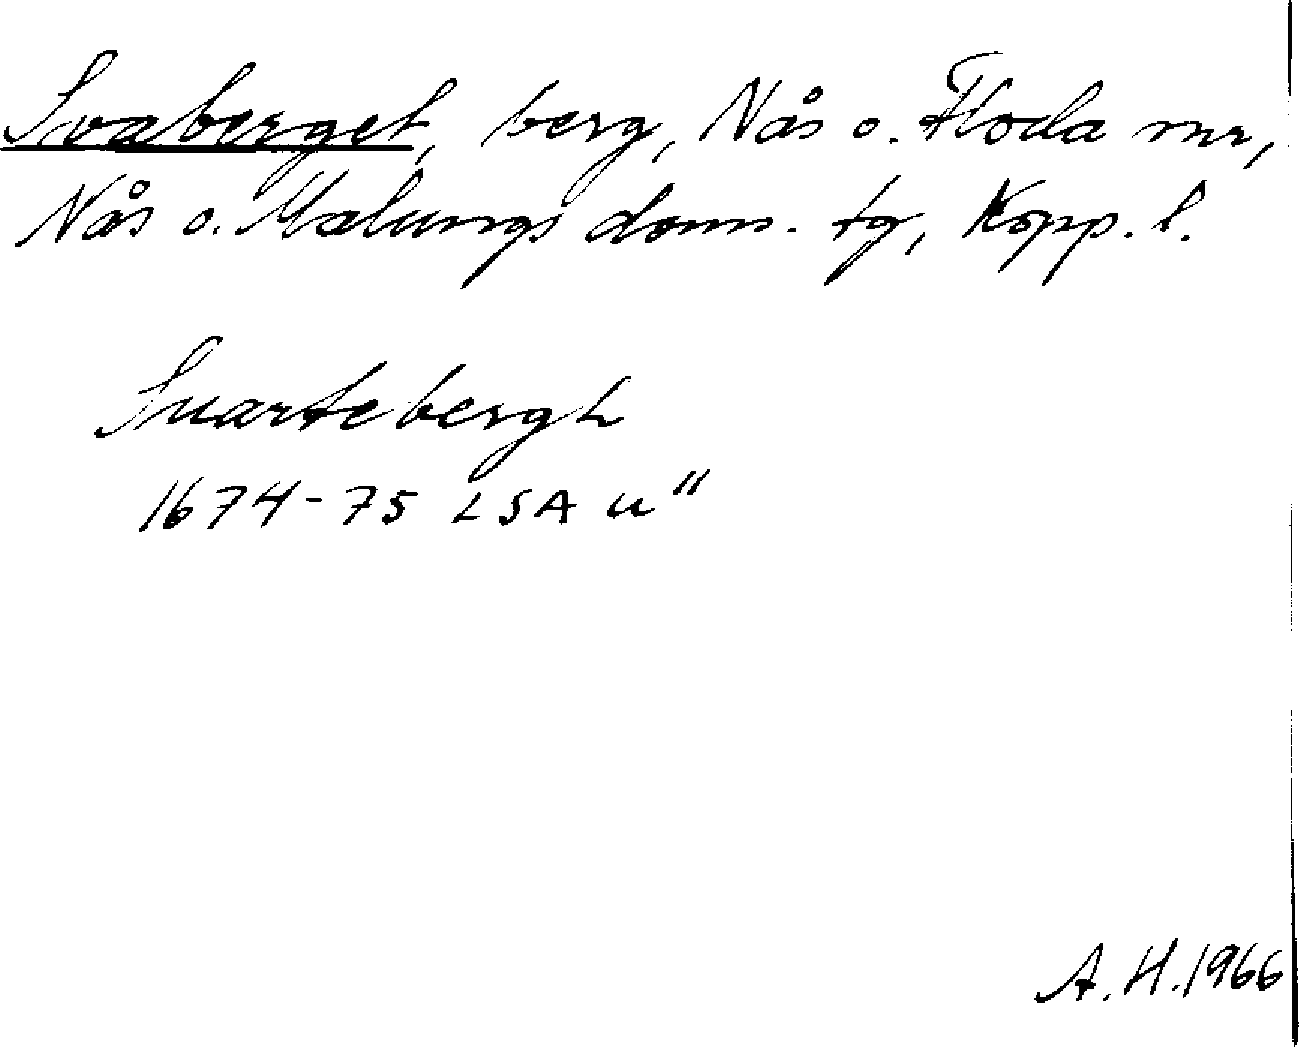 Svaberget, berg, Nås o. Floda snr,
Nås o. Malungs doms. tg, Kopp. l.
Suartebergh
1674-75 LSA u"
A. H. 1966